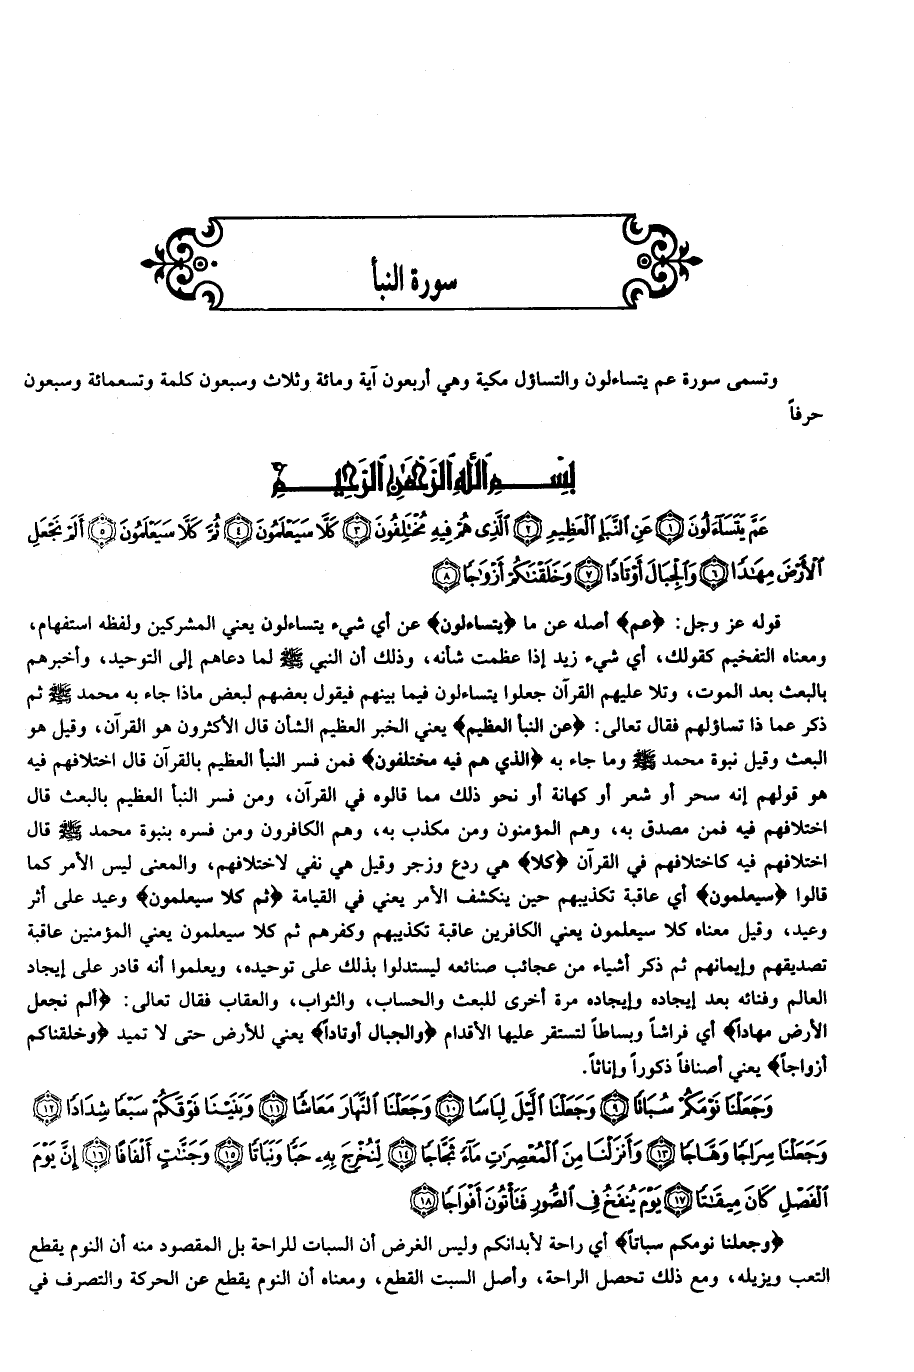 سورة النبأ
وتسمى سورة عم يتساءلون والتساؤل مكية وهي أربعون آية ومائة وثلاث وسبعون كلمة وتسعمائة وسبعون
حرفاً
بِسْمِ ٱللَّهِ ٱلرَّحْمَٰنِ ٱلرَّحِيمِ
عَمَّ يَتَسَآءَلُونَ ﴿١﴾ عَنِ ٱلنَّبَإِ ٱلْعَظِيمِ ﴿٢﴾ ٱلَّذِى هُمْ فِيهِ مُخْتَلِفُونَ ﴿٣﴾ كَلَّا سَيَعْلَمُونَ ﴿٤﴾ ثُمَّ كَلَّا سَيَعْلَمُونَ ﴿٥﴾ أَلَمْ نَجْعَلِ
ٱلْأَرْضَ مِهَٰدًا ﴿٦﴾ وَٱلْجِبَالَ أَوْتَادًا ﴿٧﴾ وَخَلَقْنَٰكُمْ أَزْوَٰجًا ﴿٨﴾
قوله عز وجل: ﴿عم﴾ أصله عن ما ﴿يتساءلون﴾ عن أي شيء يتساءلون يعني المشركين ولفظه استفهام،
ومعناه التفخيم كقولك، أي شيء زيد إذا عظمت شأنه، وذلك أن النبي ﷺ لما دعاهم إلى التوحيد، وأخبرهم
بالبعث بعد الموت، وتلا عليهم القرآن جعلوا يتساءلون فيما بينهم فيقول بعضهم لبعض ماذا جاء به محمد ﷺ ثم
ذكر عما ذا تساؤلهم فقال تعالى: ﴿عن النبأ العظيم﴾ يعني الخبر العظيم الشأن قال الأكثرون هو القرآن، وقيل هو
البعث وقيل نبوة محمد ﷺ وما جاء به ﴿الذي هم فيه مختلفون﴾ فمن فسر النبأ العظيم بالقرآن قال اختلافهم فيه
هو قولهم إنه سحر أو شعر أو كهانة أو نحو ذلك مما قالوه في القرآن، ومن فسر النبأ العظيم بالبعث قال
اختلافهم فيه فمن مصدق به، وهم المؤمنون ومن مكذب به، وهم الكافرون ومن فسره بنبوة محمد ﷺ قال
اختلافهم فيه كاختلافهم في القرآن ﴿كلا﴾ هي ردع وزجر وقيل هي نفي لاختلافهم، والمعنى ليس الأمر كما
قالوا ﴿سيعلمون﴾ أي عاقبة تكذيبهم حين ينكشف الأمر يعني في القيامة ﴿ثم كلا سيعلمون﴾ وعيد على أثر
وعيد، وقيل معناه كلا سيعلمون يعني الكافرين عاقبة تكذيبهم وكفرهم ثم كلا سيعلمون يعني المؤمنين عاقبة
تصديقهم وإيمانهم ثم ذكر أشياء من عجائب صنائعه ليستدلوا بذلك على توحيده، ويعلموا أنه قادر على إيجاد
العالم وفنائه بعد إيجاده وإيجاده مرة أخرى للبعث والحساب، والثواب، والعقاب فقال تعالى: ﴿ألم نجعل
الأرض مهاداً﴾ أي فراشاً وبساطاً لتستقر عليها الأقدام ﴿والجبال أوتاداً﴾ يعني للأرض حتى لا تميد ﴿وخلقناكم
أزواجاً﴾ يعني أصنافاً ذكوراً وإناثاً.
وَجَعَلْنَا نَوْمَكُمْ سُبَاتًا ﴿٩﴾ وَجَعَلْنَا ٱلَّيْلَ لِبَاسًا ﴿١٠﴾ وَجَعَلْنَا ٱلنَّهَارَ مَعَاشًا ﴿١١﴾ وَبَنَيْنَا فَوْقَكُمْ سَبْعًا شِدَادًا ﴿١٢﴾
وَجَعَلْنَا سِرَاجًا وَهَّاجًا ﴿١٣﴾ وَأَنزَلْنَا مِنَ ٱلْمُعْصِرَٰتِ مَآءً ثَجَّاجًا ﴿١٤﴾ لِّنُخْرِجَ بِهِۦ حَبًّا وَنَبَاتًا ﴿١٥﴾ وَجَنَّٰتٍ أَلْفَافًا ﴿١٦﴾ إِنَّ يَوْمَ
ٱلْفَصْلِ كَانَ مِيقَٰتًا ﴿١٧﴾ يَوْمَ يُنفَخُ فِى ٱلصُّورِ فَتَأْتُونَ أَفْوَاجًا ﴿١٨﴾
﴿وجعلنا نومكم سباتاً﴾ أي راحة لأبدانكم وليس الغرض أن السبات للراحة بل المقصود منه أن النوم يقطع
التعب ويزيله، ومع ذلك تحصل الراحة، وأصل السبت القطع، ومعناه أن النوم يقطع عن الحركة والتصرف في